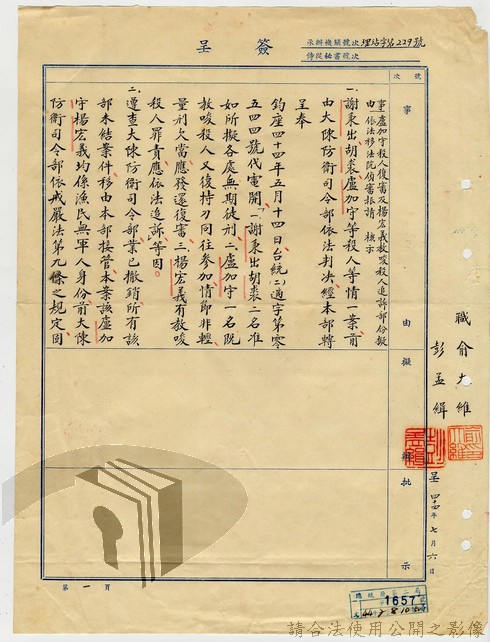 簽呈
承辦機關號次 理玷字第229號
侍從秘書號次
號次
事由
擬辦
批示
職俞大維
彭孟緝
呈四十四年七月六日
事由盧加守殺人復審及楊宏義教唆殺人追訴部份擬
依法移法院偵審報請 核示
一、謝東出胡裘盧加守等殺人等情一案前
由大陳防衛司令部依法判決經本部轉
呈奉
鈞座四十四年五月十四日台統㈡適字第零
五四四號代電開「一謝東出胡裘二名准
如所擬各處無期徒刑二盧加守一名既
教唆殺人又復持刃同往參加情節非輕
量刑欠當應發還復審三楊宏義有教唆
殺人罪責應依法追訴」等因。
二、遵查大陳防衛司令部業已撤銷所有該
部未結案件移由本部接管本案該盧加
守楊宏義均係漁民無軍人身份前大陳
防衛司令部依戒嚴法第九條之規定因
第一頁
1657
請合法使用公開之影像